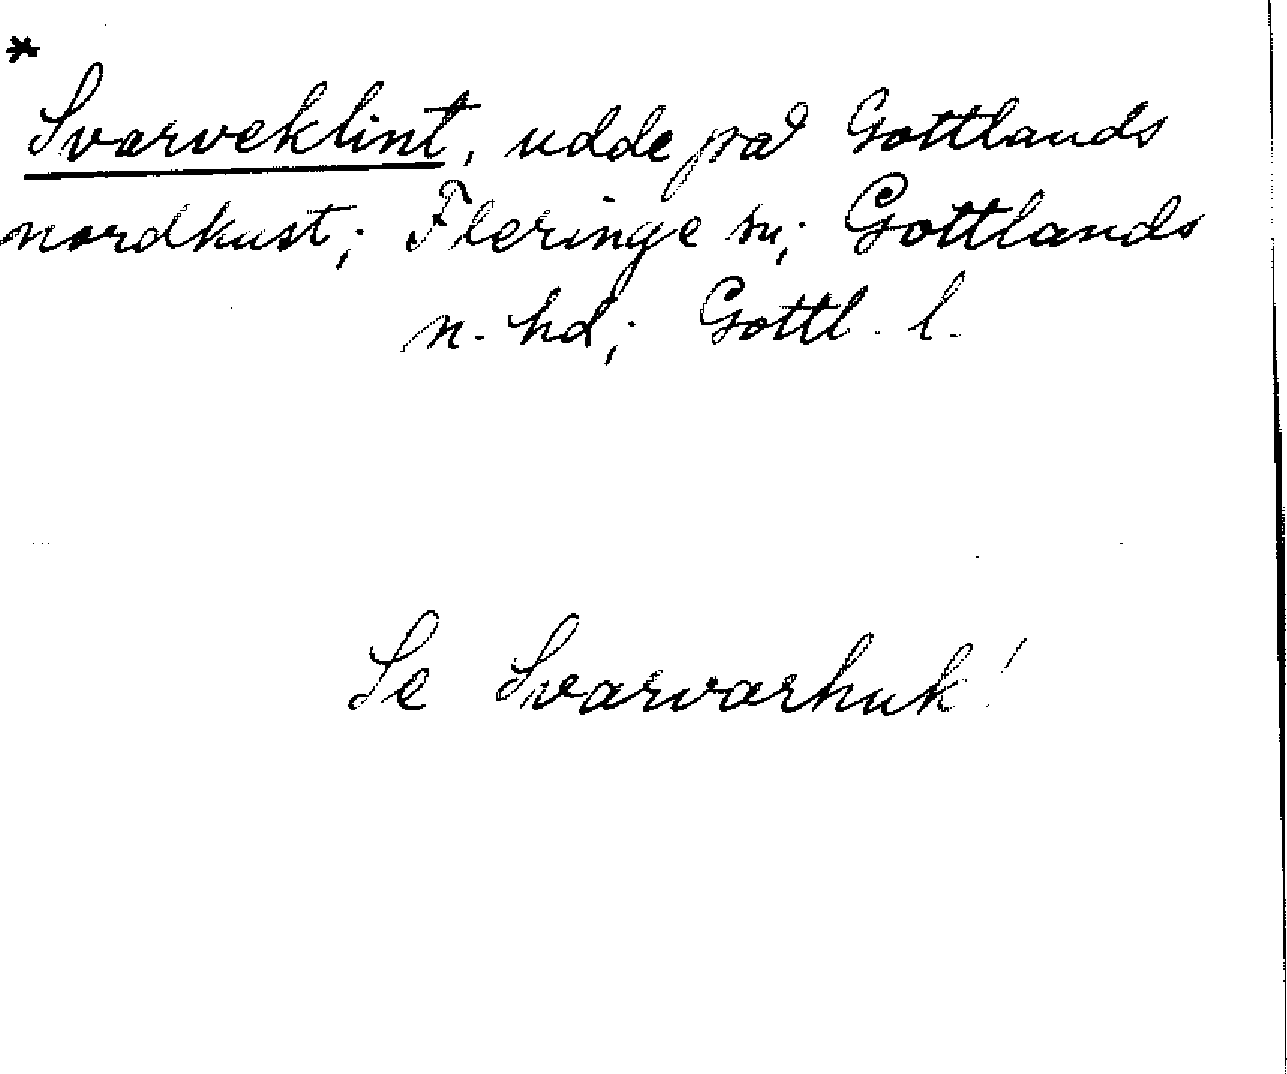 *
Svarveklint, udde på Gottlands
nordkust; Fleringe sn; Gottlands
n. hd; Gottl. l.
Se Svarvarhuk!